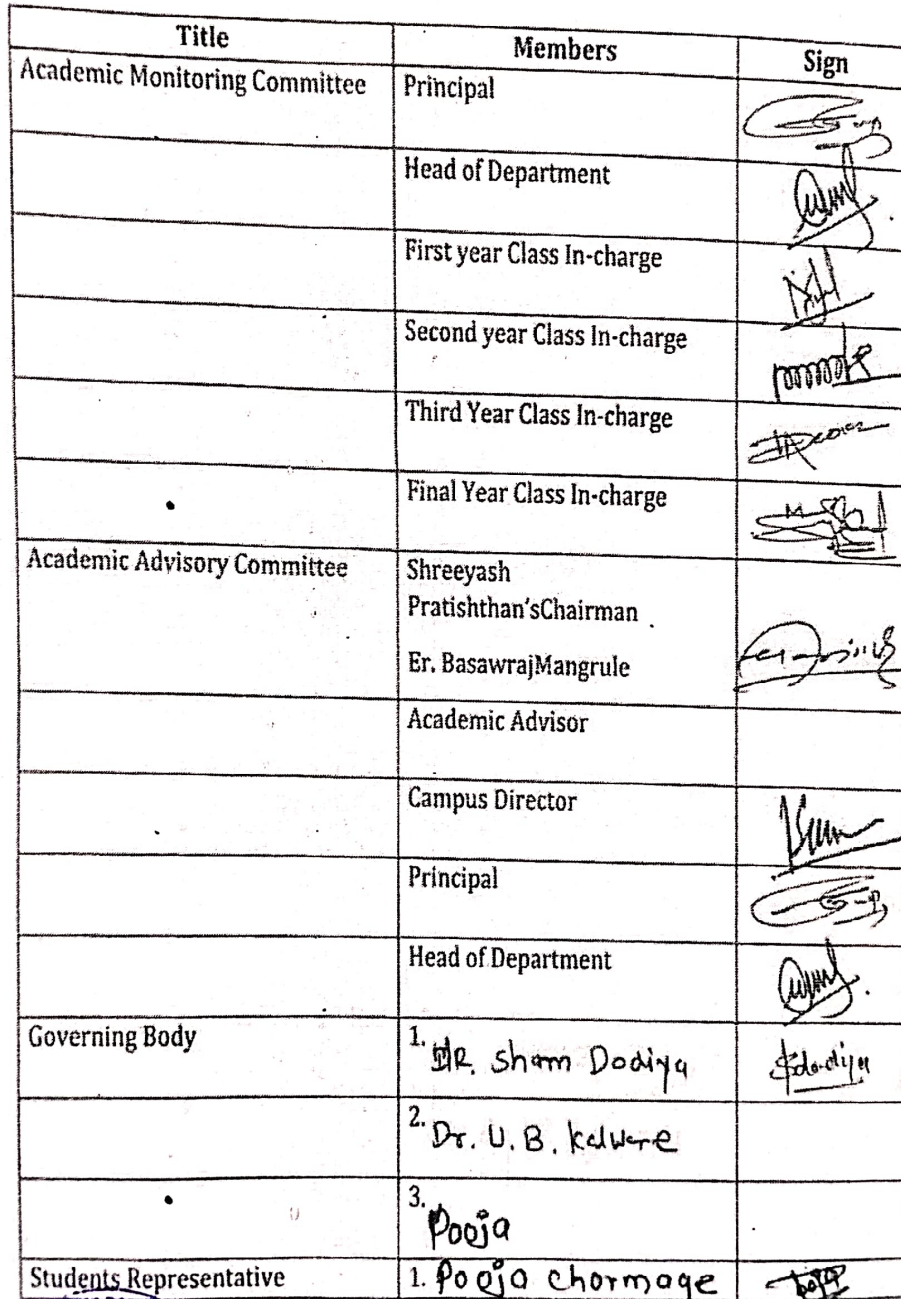 Title Members Sign
Academic Monitoring Committee Principal
Head of Department
First year Class In-charge
Second year Class In-charge
Third Year Class In-charge
Final Year Class In-charge
Academic Advisory Committee Shreeyash
Pratishthan'sChairman
Er. BasawrajMangrule
Academic Advisor
Campus Director
Principal
Head of Department
Governing Body 1. Sham Dodiya Sdodiya
2. Dr. U. B. Kalwere
3. Pooja
Students Representative 1. Pooja chormage